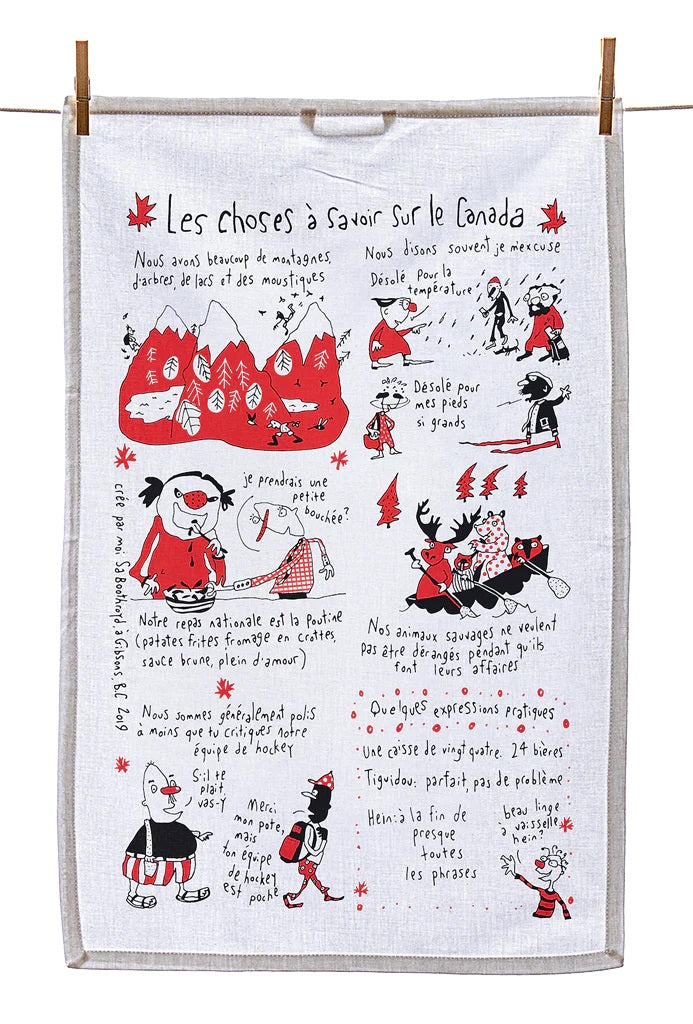 Les choses à savoir sur le Canada
Nous avons beaucoup de montagnes,
d'arbres, de lacs et des moustiques
Nous disons souvent je m'excuse
Désolé pour la
température
Désolé pour
mes pieds
si grands
je prendrais une
petite
bouchée?
Notre repas nationale est la poutine
(patates frites fromage en crottes,
sauce brune, plein d'amour)
Nos animaux sauvages ne veulent
pas être dérangés pendant qu'ils
font leurs affaires
crée par moi SG Boothroyd, à Gibsons, B.C 2019
Nous sommes généralement polis
à moins que tu critiques notre
équipe de hockey
S'il te
plait,
vas-y
Merci
mon pote,
mais
ton équipe
de hockey
est poche
Quelques expressions pratiques
Une caisse de vingt quatre. 24 bières
Tiguidou: parfait, pas de problème
Hein: à la fin de
presque
toutes
les phrases
beau linge
à vaisselle,
hein?